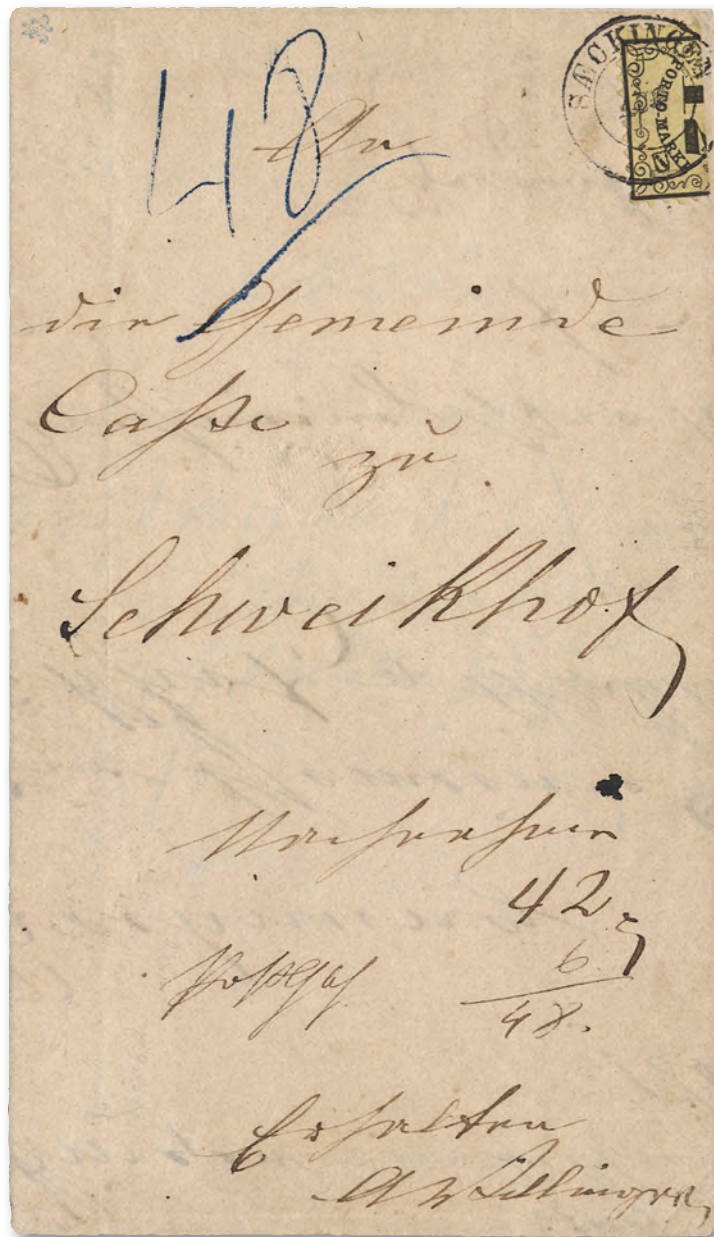 SÆCKINGEN
PORTO-MARKE
48
An
die Gemeinde
Casse
zu
Schweikhof
Nachnahme
42
6
48.
Erhalten